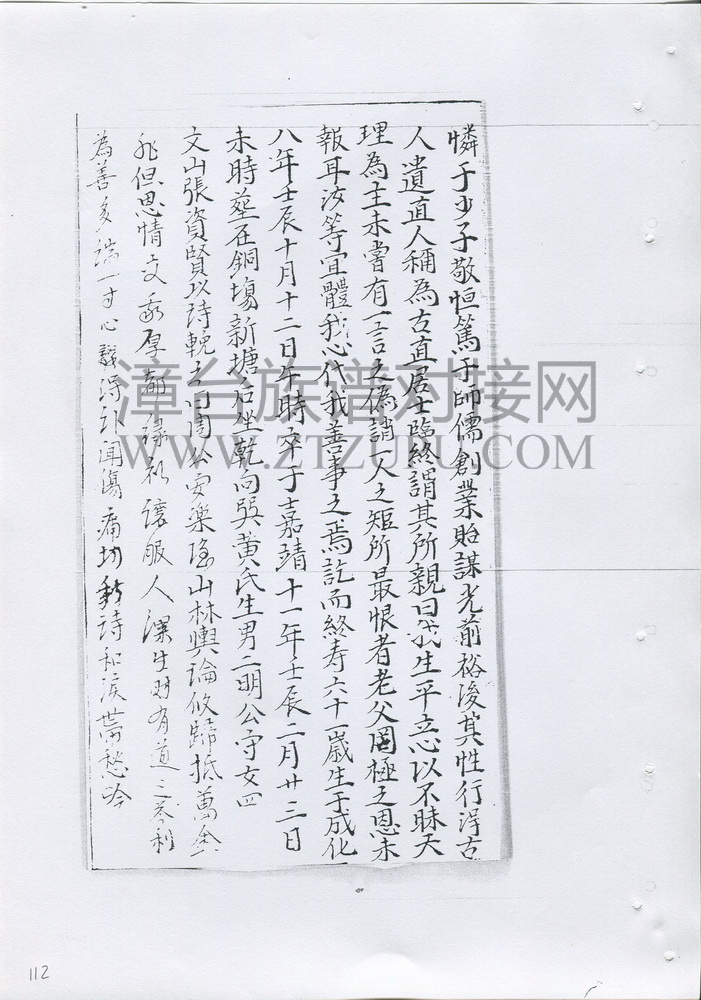 憐于少子敬恒篤于師儒創業貽謀光前裕後其性行淂古
人遺直人稱為古直居士臨終謂其所親曰我生平立心以不昧天
理為主未嘗有一言之偽誚人之短所最恨者老父罔極之恩未
報耳汝等宜體我心代我善事之焉訖而終寿六十一歲生于成化
八年壬辰十月十二日午時卒于嘉靖十一年壬辰二月廿三日
未時塟在銅塲新塘后坐乾向巽黄氏生男二明公守女四
文山張資賢以詩輓之曰周公安樂隱山林輿論攸歸抵萬金
非但恩情交長厚 禮讓服人深生財有道 利
為善多端一寸心 淂訃聞傷痛切 詩和淚帶愁吟
漳台族谱对接网
WWW.ZTZUPU.COM
112